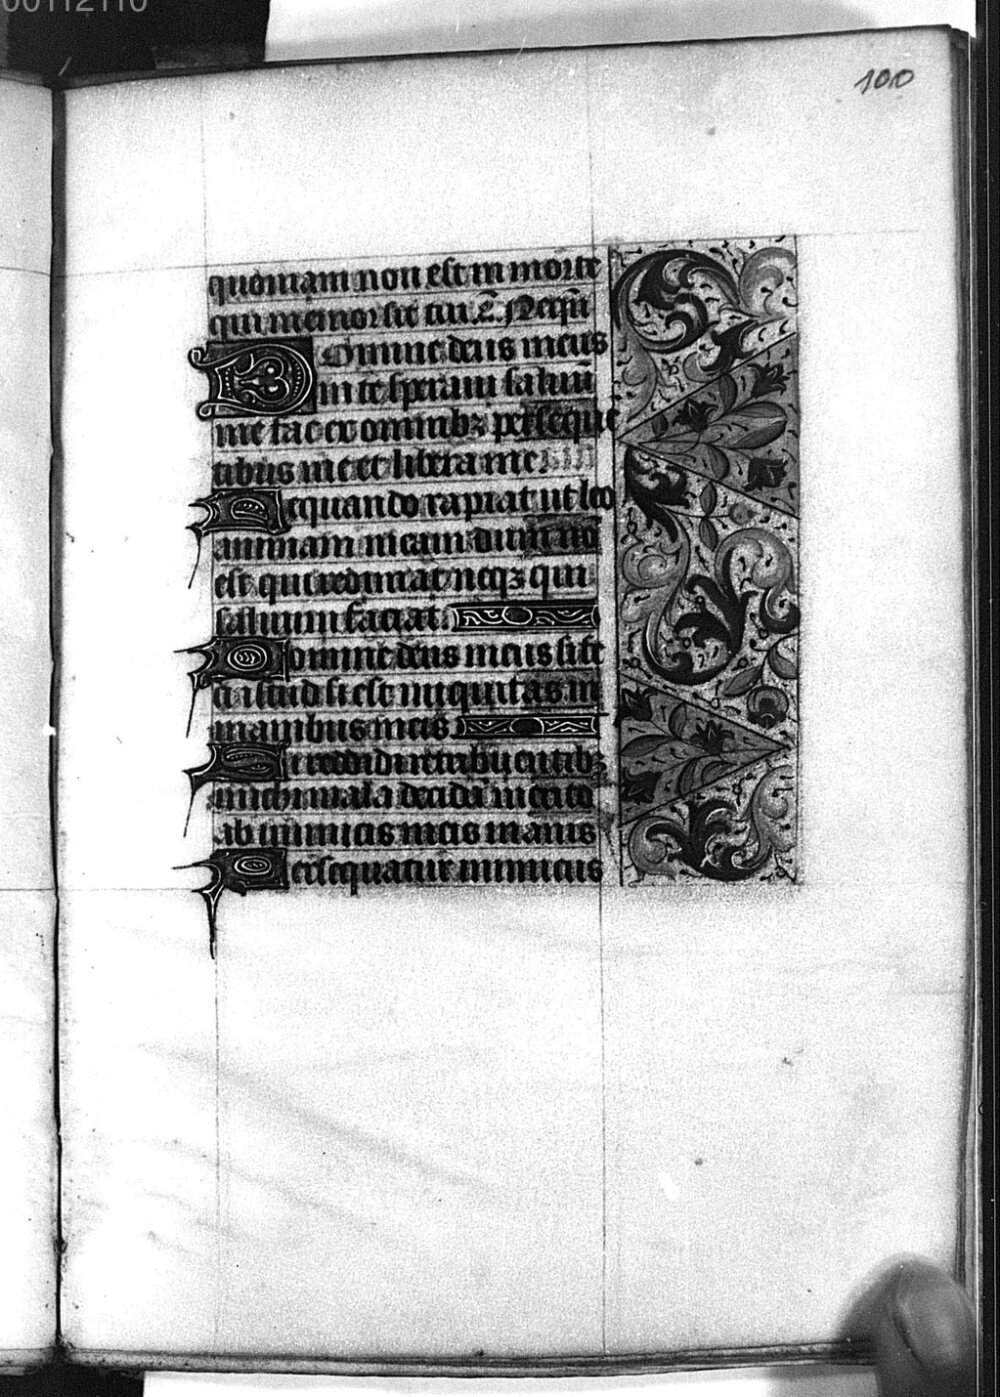 00112110
100
quoniam non est in morte
qui memor sit tui. Ne qn̄
Domine deus meus
in te speraui saluū
me fac ex omnibꝫ perseque
tibus me et libera me.
Nequando rapiat ut leo
animam meam dum no
est qui redimat neqꝫ qui
saluum faciat.
Domine deus meus si fe
ci istud si est iniquitas in
manibus meis
Si reddidi retribuentibꝫ
michi mala decidā merito
ab inimicis meis inanis
Persequatur inimicus